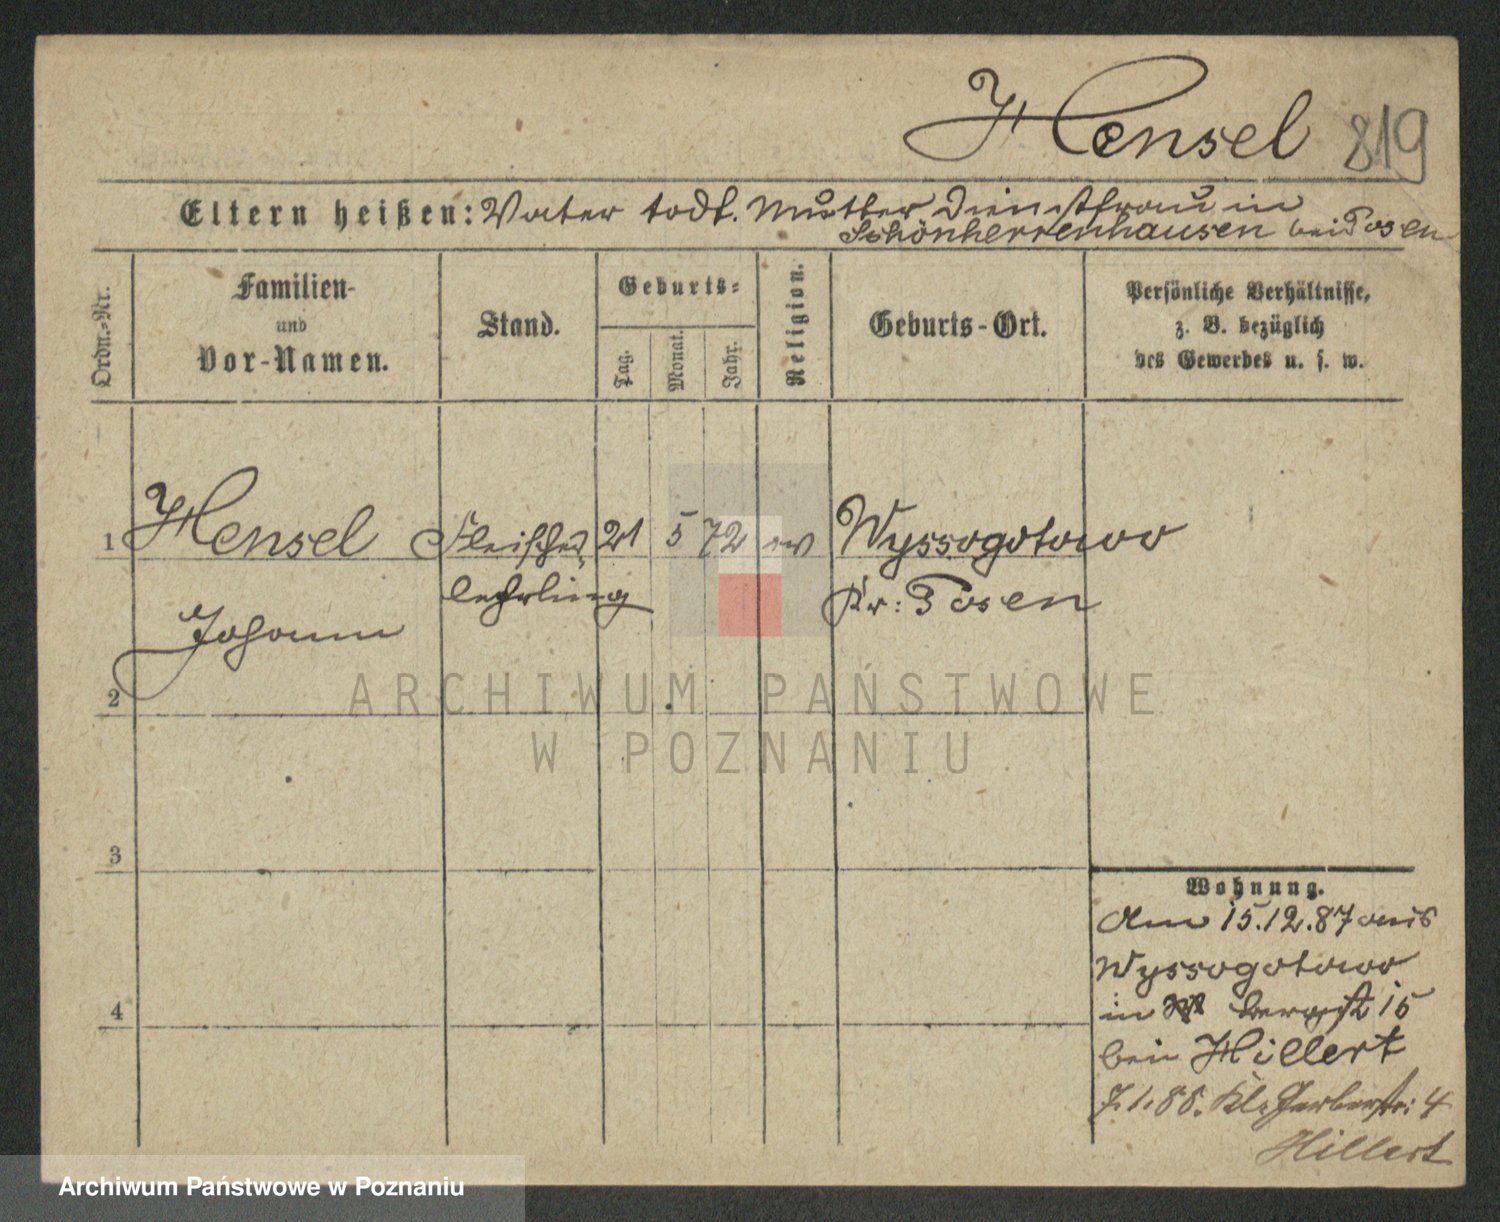 Hensel 819
Eltern heißen: Vater todt. Mutter Dienstfrau in
Schönherrenhausen bei Posen
Ordn.-Nr.
Familien-
und
Vor-Namen.
Stand.
Geburts-
Tag.
Monat.
Jahr.
Religion.
Geburts-Ort.
Persönliche Verhältnisse,
z. B. bezüglich
des Gewerbes u. s. w.
1 Hensel Fleischer 21 5 72 ev Wyssogotowo
lehrling Kr: Posen
Johann
2
ARCHIWUM PAŃSTWOWE
W POZNANIU
3
Wohnung.
Am 15.12.87 aus
Wyssogotowo
4
in Bergst 15
bei Hillert
7.1.88. Kl. Gerberstr: 4
Hillert
Archiwum Państwowe w Poznaniu